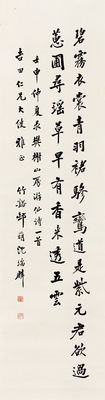 碧霧衣裳青羽裙驂鸞道是紫元君欲過
蕙圃尋瑤草早有香來透五雲
壬申仲夏录樊榭山房游仙诗一首
吉田仁兄大使雅正
竹谿邨沈瑞麟